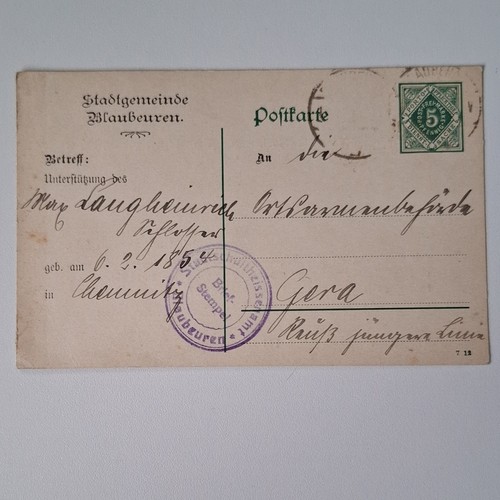 Stadtgemeinde
Blaubeuren.
Betreff:
Unterstützung des
Max Langheinrich
Schlosser
geb. am 6. 2. 1854
in Chemnitz
Postkarte
An die
Ortsarmenbehörde
Gera
Reuß jüngere Linie
5
Stadtschultheissenamt
Blaubeuren
Brief-
Stempel
7 12